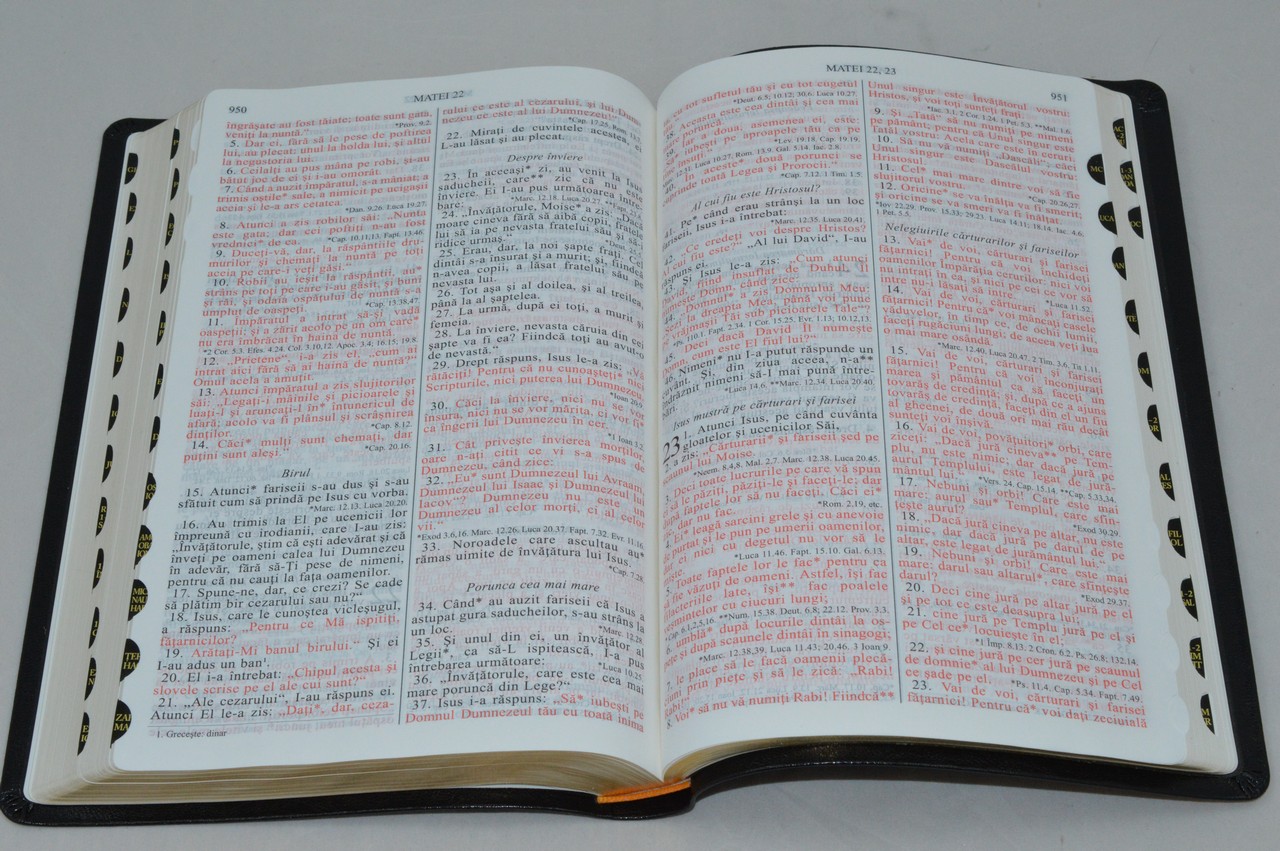 950
MATEI 22
îngrăşate au fost tăiate; toate sunt gata,
veniţi la nuntă."
*Prov. 9.2.
5. Dar ei, fără să le pese de poftirea
lui, au plecat: unul la holda lui, şi altul
la negustoria lui.
6. Ceilalţi au pus mâna pe robi, şi-au
bătut joc de ei şi i-au omorât.
7. Când a auzit împăratul, s-a mâniat; a
trimis oştile* sale, a nimicit pe ucigaşii
aceia şi le-a ars cetatea.
*Dan. 9.26. Luca 19.27.
8. Atunci a zis robilor săi: „Nunta
este gata; dar cei poftiţi n-au fost
vrednici* de ea.
*Cap. 10.11,13. Fapt. 13.46.
9. Duceţi-vă, dar, la răspântiile dru-
murilor şi chemaţi la nuntă pe toţi
aceia pe care-i veţi găsi."
10. Robii au ieşit la răspântii, au*
strâns pe toţi pe care i-au găsit, şi buni
şi răi, şi odaia ospăţului de nuntă s-a
umplut de oaspeţi.
*Cap. 13.38,47.
11. Împăratul a intrat să-şi vadă
oaspeţii; şi a zărit acolo pe un om care*
nu era îmbrăcat în haina de nuntă.
*2 Cor. 5.3. Efes. 4.24. Col. 3.10,12. Apoc. 3.4; 16.15; 19.8.
12. „Prietene", i-a zis el, „cum ai
intrat aici fără să ai haina de nuntă?"
Omul acela a amuţit.
13. Atunci împăratul a zis slujitorilor
săi: „Legaţi-i mâinile şi picioarele şi
luaţi-l şi aruncaţi-l în* întunericul de
afară; acolo va fi plânsul şi scrâşnirea
dinţilor.
*Cap. 8.12.
14. Căci* mulţi sunt chemaţi, dar
puţini sunt aleşi."
*Cap. 20.16.
Birul
15. Atunci* fariseii s-au dus şi s-au
sfătuit cum să prindă pe Isus cu vorba.
*Marc. 12.13. Luca 20.20.
16. Au trimis la El pe ucenicii lor
împreună cu irodianii, care I-au zis:
„Învăţătorule, ştim că eşti adevărat şi că
înveţi pe oameni calea lui Dumnezeu
în adevăr, fără să-Ţi pese de nimeni,
pentru că nu cauţi la faţa oamenilor.
17. Spune-ne, dar, ce crezi? Se cade
să plătim bir cezarului sau nu?"
18. Isus, care le cunoştea vicleşugul,
a răspuns: „Pentru ce Mă ispitiţi,
făţarnicilor?
19. Arătaţi-Mi banul birului." Şi ei
I-au adus un ban¹.
20. El i-a întrebat: „Chipul acesta şi
slovele scrise pe el ale cui sunt?"
21. „Ale cezarului", I-au răspuns ei.
Atunci El le-a zis: „Daţi*, dar, ceza-
1. Greceşte: dinar
rului ce este al cezarului, şi lui Dum-
nezeu ce este al lui Dumnezeu!"
*Cap. 17.25. Rom. 13.7.
22. Miraţi de cuvintele acestea, ei
L-au lăsat şi au plecat.
Despre înviere
23. În aceeaşi* zi, au venit la Isus
saducheii, care** zic că nu este
înviere. Ei I-au pus următoarea între-
bare:
*Marc. 12.18. Luca 20.27.
24. „Învăţătorule, Moise* a zis: „Dacă
moare cineva fără să aibă copii, fratele
lui să ia pe nevasta fratelui său şi să-i
ridice urmaş."
25. Erau, dar, la noi şapte fraţi. Cel
dintâi s-a însurat şi a murit; şi, fiindcă
n-avea copii, a lăsat fratelui său pe
nevasta lui.
26. Tot aşa şi al doilea, şi al treilea,
până la al şaptelea.
27. La urmă, după ei toţi, a murit şi
femeia.
28. La înviere, nevasta căruia din cei
şapte va fi ea? Fiindcă toţi au avut-o
de nevastă."
29. Drept răspuns, Isus le-a zis: „Vă
rătăciţi! Pentru că nu cunoaşteţi* nici
Scripturile, nici puterea lui Dumnezeu.
*Ioan 20.9.
30. Căci la înviere, nici nu se vor
însura, nici nu se vor mărita, ci vor fi*
ca îngerii lui Dumnezeu în cer.
*1 Ioan 3.2.
31. Cât priveşte învierea morţilor,
n-aţi citit ce vi s-a spus de
Dumnezeu, când zice:
32. „Eu* sunt Dumnezeul lui Avraam,
Dumnezeul lui Isaac şi Dumnezeul lui
Iacov"? Dumnezeu nu este un
Dumnezeu al celor morţi, ci al celor
vii."
*Exod 3.6,16. Marc. 12.26. Luca 20.37. Fapt. 7.32. Evr. 11.16.
33. Noroadele care ascultau au*
rămas uimite de învăţătura lui Isus.
*Cap. 7.28.
Porunca cea mai mare
34. Când* au auzit fariseii că Isus a
astupat gura saducheilor, s-au strâns la
un loc.
*Marc. 12.28.
35. Şi unul din ei, un învăţător al
Legii*, ca să-L ispitească, I-a pus
întrebarea următoare:
*Luca 10.25.
36. „Învăţătorule, care este cea mai
mare poruncă din Lege?"
37. Isus i-a răspuns: „Să* iubeşti pe
Domnul Dumnezeul tău cu toată inima
MATEI 22, 23
951
ta, cu tot sufletul tău şi cu tot cugetul
*Deut. 6.5; 10.12; 30.6. Luca 10.27.
38. Aceasta este cea dintâi şi cea mai
mare poruncă.
39. Iar a doua, asemenea ei, este:
„Să* iubeşti pe aproapele tău ca pe
tine însuţi."
*Lev. 19.18. Cap. 19.19.
Luca 10.27. Rom. 15.9. Gal. 5.14. Iac. 2.8.
40. În aceste* două porunci se
cuprinde toată Legea şi Prorocii."
*Cap. 7.12. 1 Tim. 1.5.
Al cui fiu este Hristosul?
41. Pe* când erau strânşi la un loc
fariseii, Isus i-a întrebat:
*Marc. 12.35. Luca 20.41.
42. „Ce credeţi voi despre Hristos?
Al cui fiu este?" „Al lui David", I-au
răspuns ei.
43. Şi Isus le-a zis: „Cum atunci
David, fiind insuflat de Duhul, Îl
numeşte Domn, când zice:
44. „Domnul* a zis Domnului Meu:
„Şezi la dreapta Mea, până voi pune
pe vrăjmaşii Tăi sub picioarele Tale"?
*Ps. 110.1. Fapt. 2.34. 1 Cor. 15.25. Evr. 1.13; 10.12,13.
45. Deci dacă David Îl numeşte
Domn, cum este El fiul lui?"
46. Nimeni* nu I-a putut răspunde un
cuvânt. Şi, din ziua aceea, n-a**
îndrăznit nimeni să-I mai pună între-
bări.
*Luca 14.6. **Marc. 12.34. Luca 20.40.
Isus mustră pe cărturari şi farisei
23 1. Atunci Isus, pe când cuvânta
gloatelor şi ucenicilor Săi,
2. a zis: „Cărturarii* şi fariseii şed pe
scaunul lui Moise.
*Neem. 8.4,8. Mal. 2.7. Marc. 12.38. Luca 20.45.
3. Deci toate lucrurile pe care vă spun
ei să le păziţi, păziţi-le şi faceţi-le; dar
după faptele lor să nu faceţi. Căci ei*
zic, dar nu fac.
*Rom. 2.19, etc.
4. Ei* leagă sarcini grele şi cu anevoie
de purtat şi le pun pe umerii oamenilor,
dar ei nici cu degetul nu vor să le
mişte.
*Luca 11.46. Fapt. 15.10. Gal. 6.13.
5. Toate faptele lor le fac* pentru ca
să fie văzuţi de oameni. Astfel, îşi fac
filacteriile late, îşi** fac poalele
veşmintelor cu ciucuri lungi;
*Cap. 6.1,2,5,16. **Num. 15.38. Deut. 6.8; 22.12. Prov. 3.3.
6. umblă* după locurile dintâi la os-
peţe şi după scaunele dintâi în sinagogi;
*Marc. 12.38,39. Luca 11.43; 20.46. 3 Ioan 9.
7. le place să le facă oamenii plecă-
ciuni prin pieţe şi să le zică: „Rabi!
Rabi!"
8. Voi* să nu vă numiţi Rabi! Fiindcă**
Unul singur este Învăţătorul vostru:
Hristos, şi voi toţi sunteţi fraţi.
*Iac. 3.1. 2 Cor. 1.24. 1 Pet. 5.3. **Mal. 1.6.
9. Şi „Tată" să nu numiţi pe nimeni
pe pământ; pentru că Unul singur este
Tatăl vostru: Acela care este în ceruri.
10. Să nu vă numiţi „Dascăli"; căci
Unul singur este Dascălul vostru:
Hristosul.
11. Cel* mai mare dintre voi să fie
slujitorul vostru.
*Cap. 20.26,27.
12. Oricine* se va înălţa va fi smerit;
şi oricine se va smeri va fi înălţat.
*Iov 22.29. Prov. 15.33; 29.23. Luca 14.11; 18.14. Iac. 4.6.
1 Pet. 5.5.
Nelegiuirile cărturarilor şi fariseilor
13. Vai* de voi, cărturari şi farisei
făţarnici! Pentru că voi închideţi
oamenilor Împărăţia cerurilor: nici voi
nu intraţi în ea, şi nici pe cei ce vor să
intre nu-i lăsaţi să intre.
*Luca 11.52.
14. Vai de voi, cărturari şi farisei
făţarnici! Pentru că* voi mâncaţi casele
văduvelor, în timp ce, de ochii lumii,
faceţi rugăciuni lungi; de aceea veţi lua
o mai mare osândă.
*Marc. 12.40. Luca 20.47. 2 Tim. 3.6. Tit 1.11.
15. Vai de voi, cărturari şi farisei
făţarnici! Pentru că voi înconjuraţi
marea şi pământul ca să faceţi un
tovarăş de credinţă; şi, după ce a ajuns
tovarăş de credinţă, faceţi din el un fiu
al gheenei, de două ori mai rău decât
sunteţi voi înşivă.
16. Vai de voi, povăţuitori* orbi, care
ziceţi: „Dacă jură cineva** pe Tem-
plu, nu este nimic; dar dacă jură pe
aurul Templului, este legat de jură-
mântul lui."
*Vers. 24. Cap. 15.14. **Cap. 5.33,34.
17. Nebuni şi orbi! Care este mai
mare: aurul* sau Templul, care sfin-
ţeşte aurul?
*Exod 30.29.
18. „Dacă jură cineva pe altar, nu este
nimic, dar dacă jură pe darul de pe
altar, este legat de jurământul lui."
19. Nebuni şi orbi! Care este mai
mare: darul sau altarul*, care sfinţeşte
darul?
*Exod 29.37.
20. Deci cine jură pe altar jură pe el
şi pe tot ce este deasupra lui;
21. cine jură pe Templu jură pe el şi
pe Cel ce* locuieşte în el;
*1 Imp. 8.13. 2 Cron. 6.2. Ps. 26.8; 132.14.
22. şi cine jură pe cer jură pe scaunul
de domnie* al lui Dumnezeu şi pe Cel
ce şade pe el.
*Ps. 11.4. Cap. 5.34. Fapt. 7.49.
23. Vai de voi, cărturari şi farisei
făţarnici! Pentru că* voi daţi zeciuială